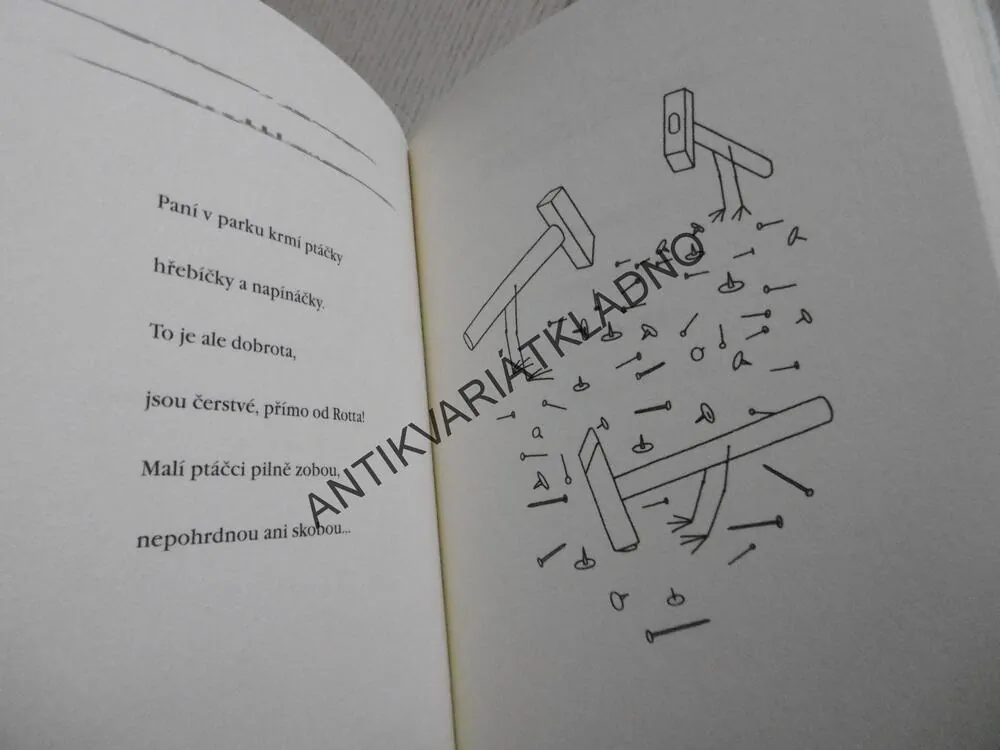 Paní v parku krmí ptáčky
hřebíčky a napínáčky.
To je ale dobrota,
jsou čerstvé, přímo od Rotta!
Malí ptáčci pilně zobou,
nepohrdnou ani skobou...
ANTIKVARIÁTKLADNO